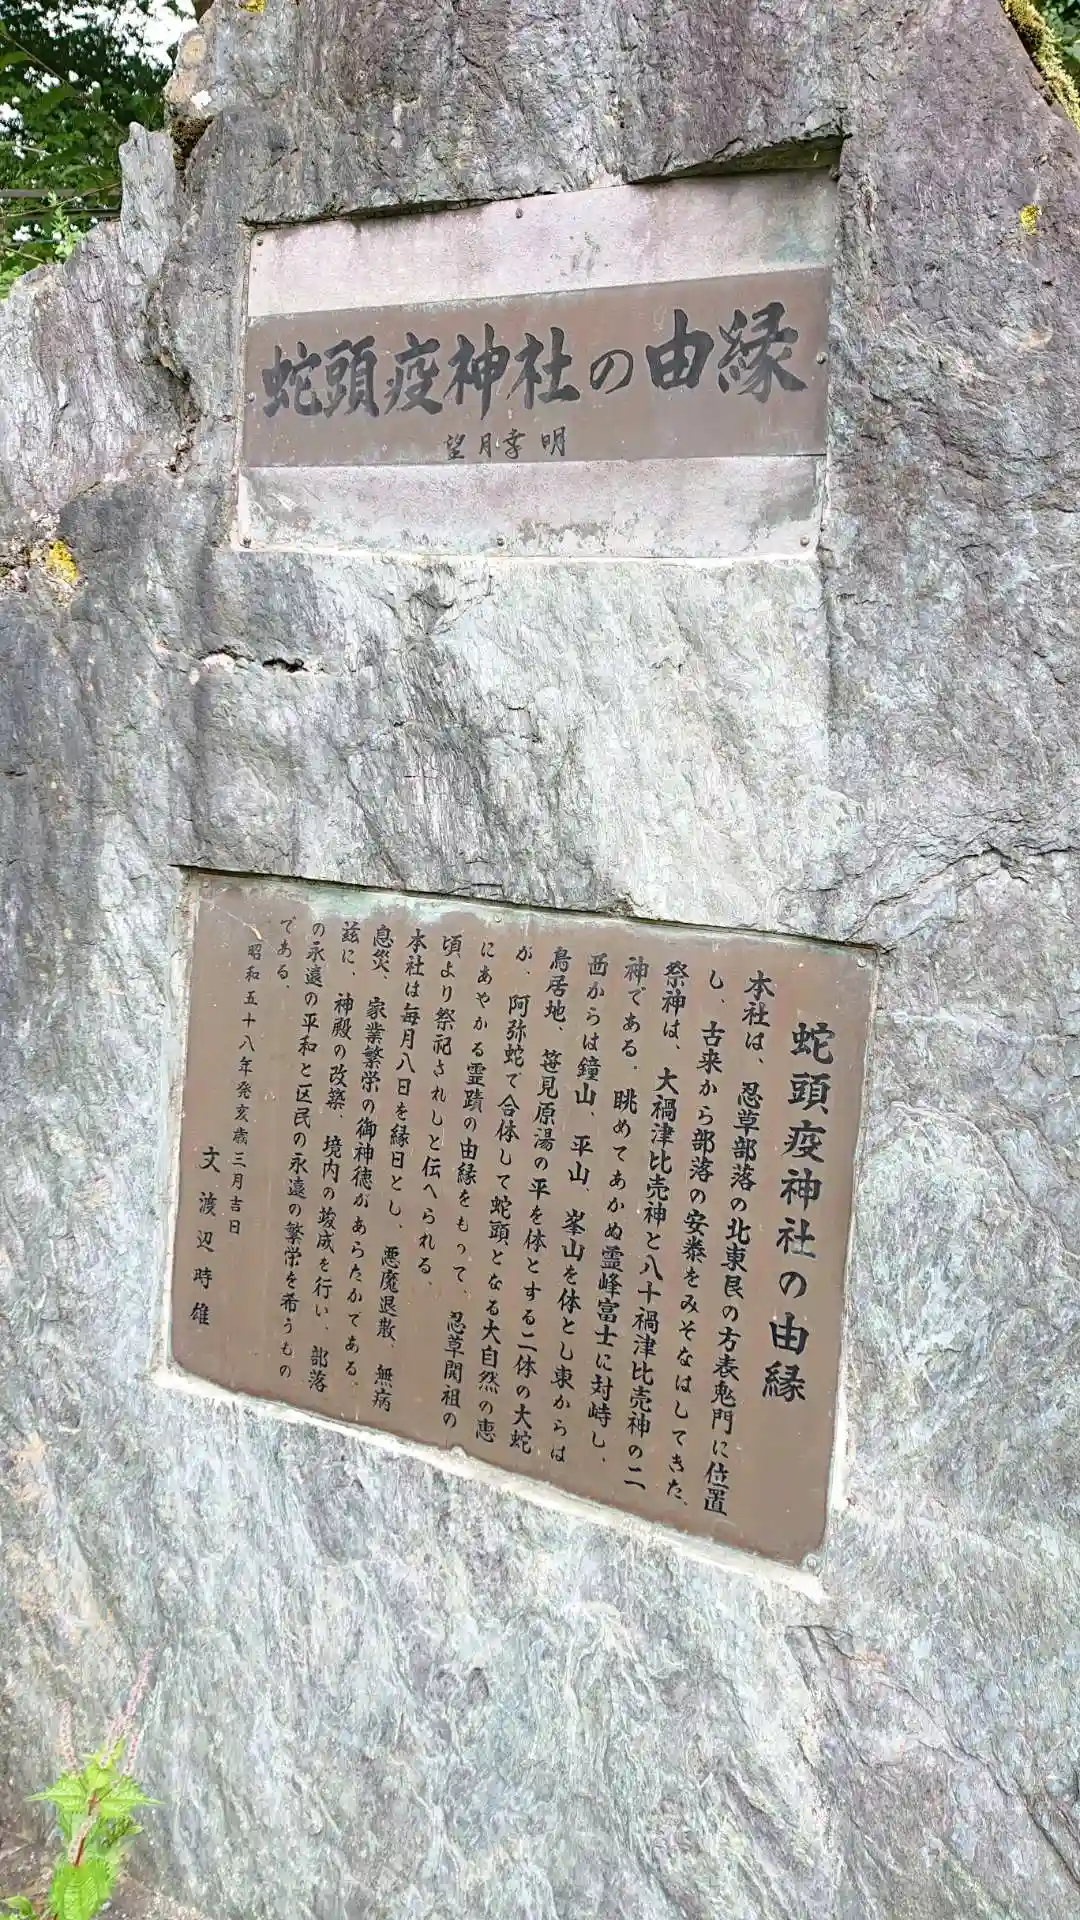 蛇頭疫神社の由縁
望月幸明
蛇頭疫神社の由縁
本社は、忍草部落の北東艮の方表鬼門に位置
し、古来から部落の安泰をみそなはしてきた、
祭神は、大禍津比売神と八十禍津比売神の二
神である。眺めてあかぬ霊峰富士に対峙し、
西からは鐘山、平山、峯山を体とし東からは
鳥居地、笹見原湯の平を体とする二体の大蛇
が、阿弥蛇で合体して蛇頭となる大自然の恵
にあやかる霊蹟の由縁をもって、忍草開祖の
頃より祭祀されしと伝へられる、
本社は毎月八日を縁日とし、悪魔退散、無病
息災、家業繁栄の御神徳があらたかである、
茲に、神殿の改築、境内の竣成を行い、部落
の永遠の平和と区民の永遠の繁栄を希うもの
である、
昭和五十八年癸亥歳三月吉日
文 渡辺時雄